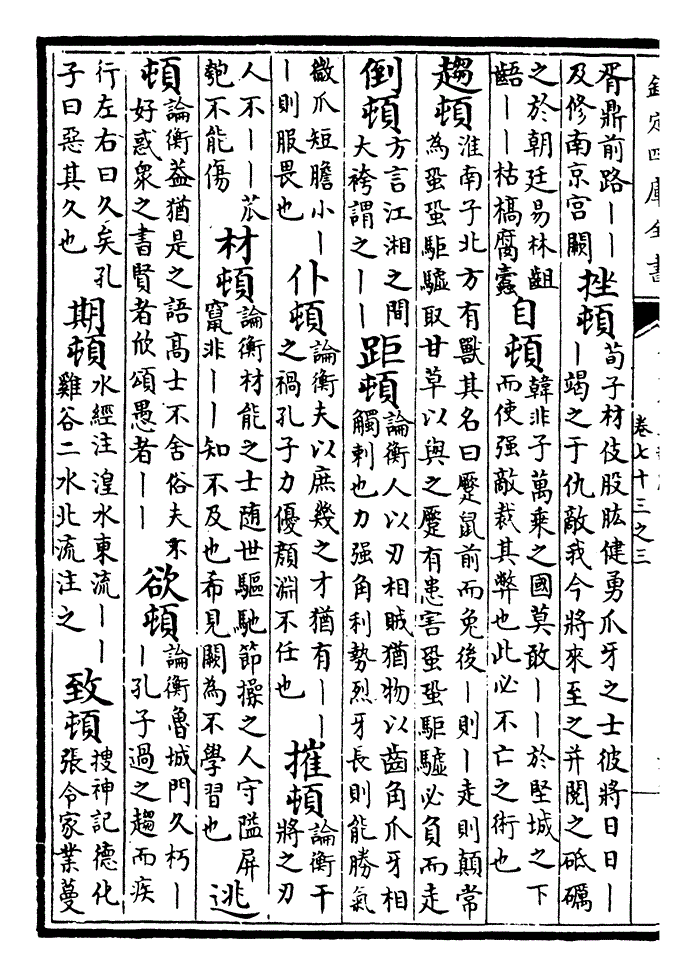 欽定四庫全書
卷七十三之三
胥鼎前路丨丨
及修南京宮闕
挫頓
荀子材伎股肱健勇爪牙之士彼將日日丨
丨竭之于仇敵我今將來至之并閱之砥礪
之於朝廷易林齟
齬丨丨枯槁腐蠹
自頓
韓非子萬乘之國莫敢丨丨於堅城之下
而使强敵裁其弊也此必不亡之術也
趨頓
淮南子北方有獸其名曰蹷鼠前而兔後丨則丨走則顛常
為蛩蛩駏驉取甘草以與之蹷有患害蛩蛩駏驉必負而走
倒頓
方言江湘之間
大袴謂之丨丨
距頓
論衡人以刃相賊猶物以齒角爪牙相
觸刺也力强角利勢烈牙長則能勝氣
微爪短膽小丨
丨則服畏也
仆頓
論衡夫以庶幾之才猶有丨丨
之禍孔子力優顏淵不任也
摧頓
論衡干
將之刃
人不丨丨苽
瓠不能傷
材頓
論衡材能之士随世驅馳節操之人守隘屏
竄非丨丨知不及也希見闕為不學習也
逃
頓
論衡葢猶是之語高士不舍俗夫不
好惑衆之書賢者欣頌愚者丨丨
欲頓
論衡魯城門久朽丨
丨孔子過之趨而疾
行左右曰久矣孔
子曰惡其久也
期頓
水經注湟水東流丨丨
雞谷二水北流注之
致頓
搜神記德化
張令家業蔓